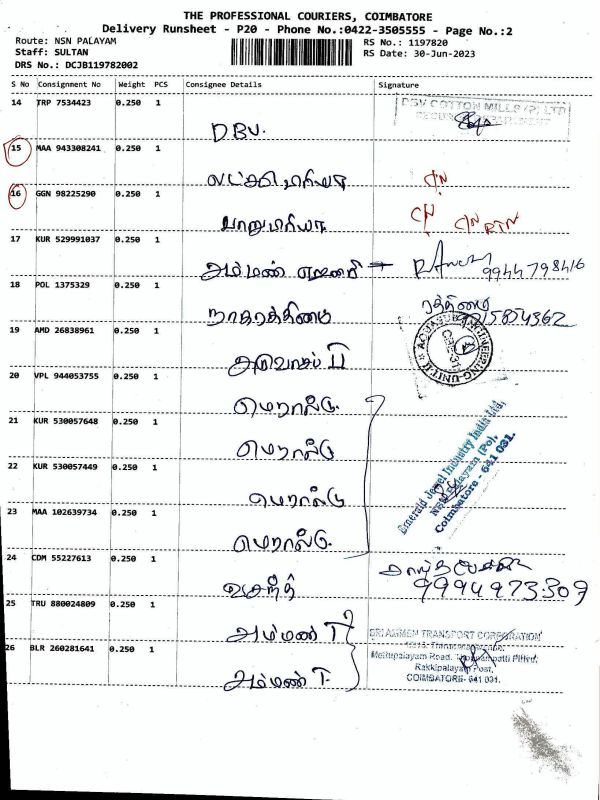 THE PROFESSIONAL COURIERS, COIMBATORE
Delivery Runsheet - P20 - Phone No.:0422-3505555 - Page No.:2
Route: NSN PALAYAM
RS No.: 1197820
Staff: SULTAN
RS Date: 30-Jun-2023
DRS No.: DCJB119782002
S No Consignment No Weight PCS Consignee Details Signature
14 TRP 7534423 0.250 1
DSV COTTON MILLS (P) LTD
DBV.
15 MAA 943308241 0.250 1
C/N
16 GGN 98225290 0.250 1
C/N C/N RTN
17 KUR 529991037 0.250 1
அம்மன்
9944798416
18 POL 1375329 0.250 1
19 AMD 26838961 0.250 1
AQUASUB ENGINEERING-UNIT-II
II
20 VPL 944053755 0.250 1
மெரால்டு
21 KUR 530057648 0.250 1
மெரால்டு
22 KUR 530057449 0.250 1
மெரால்டு
Emerald Jewel Industry India Ltd,
Coimbatore - 641 031.
23 MAA 102639734 0.250 1
மெரால்டு
24 CDM 55227613 0.250 1
வசந்த்
9994973309
25 TRU 880024809 0.250 1
அம்மன் T
SRI AMMEN TRANSPORT CORPORATION
Mettupalayam Road,
Rakkipalayam Post,
COIMBATORE- 641 031.
26 BLR 260281641 0.250 1
அம்மன் T.